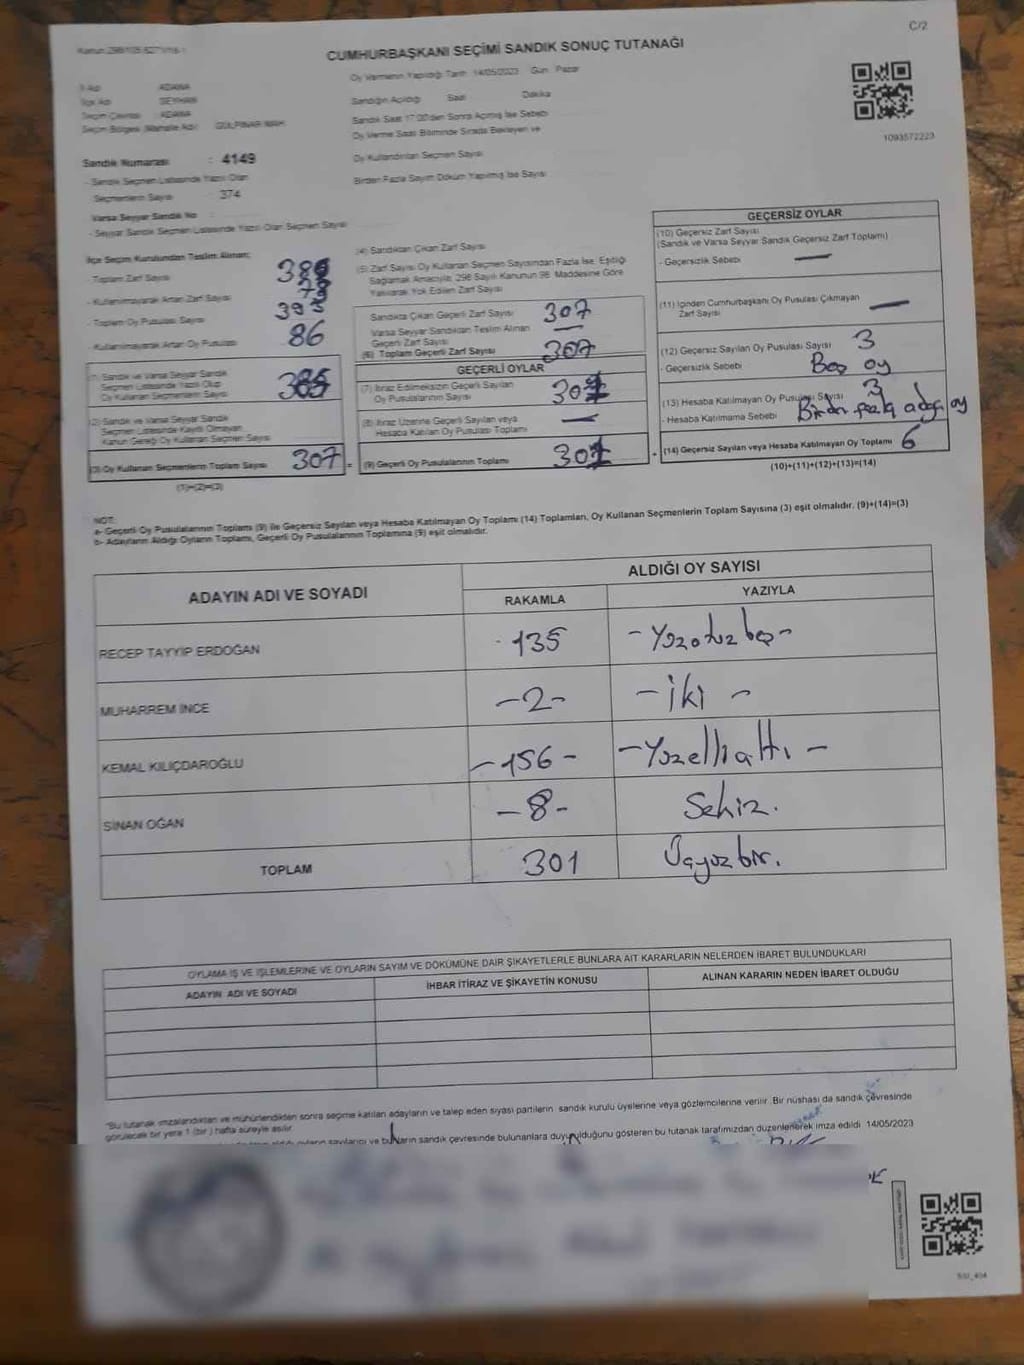 C/2
CUMHURBAŞKANI SEÇİMİ SANDIK SONUÇ TUTANAĞI
Oy Vermenin Yapıldığı Tarih 14/05/2023 Gün Pazar
İl Adı ADANA
İlçe Adı SEYHAN
Seçim Çevresi ADANA
Seçim Bölgesi (Mahalle Adı) GÜLPINAR MAH.
Sandığın Açıldığı Saat Dakika
Sandık Saat 17:00'den Sonra Açılmış İse Sebebi
Oy Verme Saati Bitiminde Sırada Bekleyen ve
Oy Kullandırılan Seçmen Sayısı
Birden Fazla Sayım Döküm Yapılmış İse Sayısı
1093572223
Sandık Numarası : 4149
- Sandık Seçmen Listesinde Yazılı Olan
Seçmenlerin Sayısı 374
Varsa Seyyar Sandık No
- Seyyar Sandık Seçmen Listesinde Yazılı Olan Seçmen Sayısı
İlçe Seçim Kurulundan Teslim Alınan;
- Toplam Zarf Sayısı
- Kullanılmayarak Artan Zarf Sayısı
- Toplam Oy Pusulası Sayısı
- Kullanılmayarak Artan Oy Pusulası 86
(1) Sandık ve Varsa Seyyar Sandık
Seçmen Listesinde Yazılı Olup
Oy Kullanan Seçmenlerin Sayısı
(2) Sandık ve Varsa Seyyar Sandık
Seçmen Listesinde Kayıtlı Olmayan
Kanun Gereği Oy Kullanan Seçmen Sayısı
(3) Oy Kullanan Seçmenlerin Toplam Sayısı 307 =
(1)+(2)=(3)
(4) Sandıktan Çıkan Zarf Sayısı
(5) Zarf Sayısı Oy Kullanan Seçmen Sayısından Fazla İse, Eşitliği
Sağlamak Amacıyla, 298 Sayılı Kanunun 98. Maddesine Göre
Yakılarak Yok Edilen Zarf Sayısı
Sandıkta Çıkan Geçerli Zarf Sayısı 307
Varsa Seyyar Sandıktan Teslim Alınan
Geçerli Zarf Sayısı —
(6) Toplam Geçerli Zarf Sayısı 307
GEÇERLİ OYLAR
(7) İtiraz Edilmeksizin Geçerli Sayılan
Oy Pusulalarının Sayısı 301
(8) İtiraz Üzerine Geçerli Sayılan veya
Hesaba Katılan Oy Pusulası Toplamı —
(9) Geçerli Oy Pusulalarının Toplamı 301 +
GEÇERSİZ OYLAR
(10) Geçersiz Zarf Sayısı
(Sandık ve Varsa Seyyar Sandık Geçersiz Zarf Toplamı)
- Geçersizlik Sebebi —
(11) İçinden Cumhurbaşkanı Oy Pusulası Çıkmayan
Zarf Sayısı —
(12) Geçersiz Sayılan Oy Pusulası Sayısı 3
- Geçersizlik Sebebi Boş oy
(13) Hesaba Katılmayan Oy Pusulası Sayısı 3
- Hesaba Katılmama Sebebi Birden fazla adaya oy
(14) Geçersiz Sayılan veya Hesaba Katılmayan Oy Toplamı 6
(10)+(11)+(12)+(13)=(14)
NOT:
a- Geçerli Oy Pusulalarının Toplamı (9) ile Geçersiz Sayılan veya Hesaba Katılmayan Oy Toplamı (14) Toplamları, Oy Kullanan Seçmenlerin Toplam Sayısına (3) eşit olmalıdır. (9)+(14)=(3)
b- Adayların Aldığı Oyların Toplamı, Geçerli Oy Pusulalarının Toplamına (9) eşit olmalıdır.
ADAYIN ADI VE SOYADI
ALDIĞI OY SAYISI
RAKAMLA YAZIYLA
RECEP TAYYİP ERDOĞAN -135 -Yüzotuzbeş-
MUHARREM İNCE -2- -iki-
KEMAL KILIÇDAROĞLU -156- -Yüzellialtı-
SİNAN OĞAN -8- Sekiz.
TOPLAM 301 Üçyüzbir.
OYLAMA İŞ VE İŞLEMLERİNE VE OYLARIN SAYIM VE DÖKÜMÜNE DAİR ŞİKAYETLERLE BUNLARA AİT KARARLARIN NELERDEN İBARET BULUNDUKLARI
ADAYIN ADI VE SOYADI İHBAR İTİRAZ VE ŞİKAYETİN KONUSU ALINAN KARARIN NEDEN İBARET OLDUĞU
"Bu tutanak imzalandıktan ve mühürlendikten sonra seçime katılan adayların ve talep eden siyasi partilerin sandık kurulu üyelerine veya gözlemcilerine verilir. Bir nüshası da sandık çevresinde
görülecek bir yere 1 (bir) hafta süreyle asılır.
oyların sayıları ve bunların sandık çevresinde bulunanlara duyurulduğunu gösteren bu tutanak tarafımızdan düzenlenerek imza edildi 14/05/2023